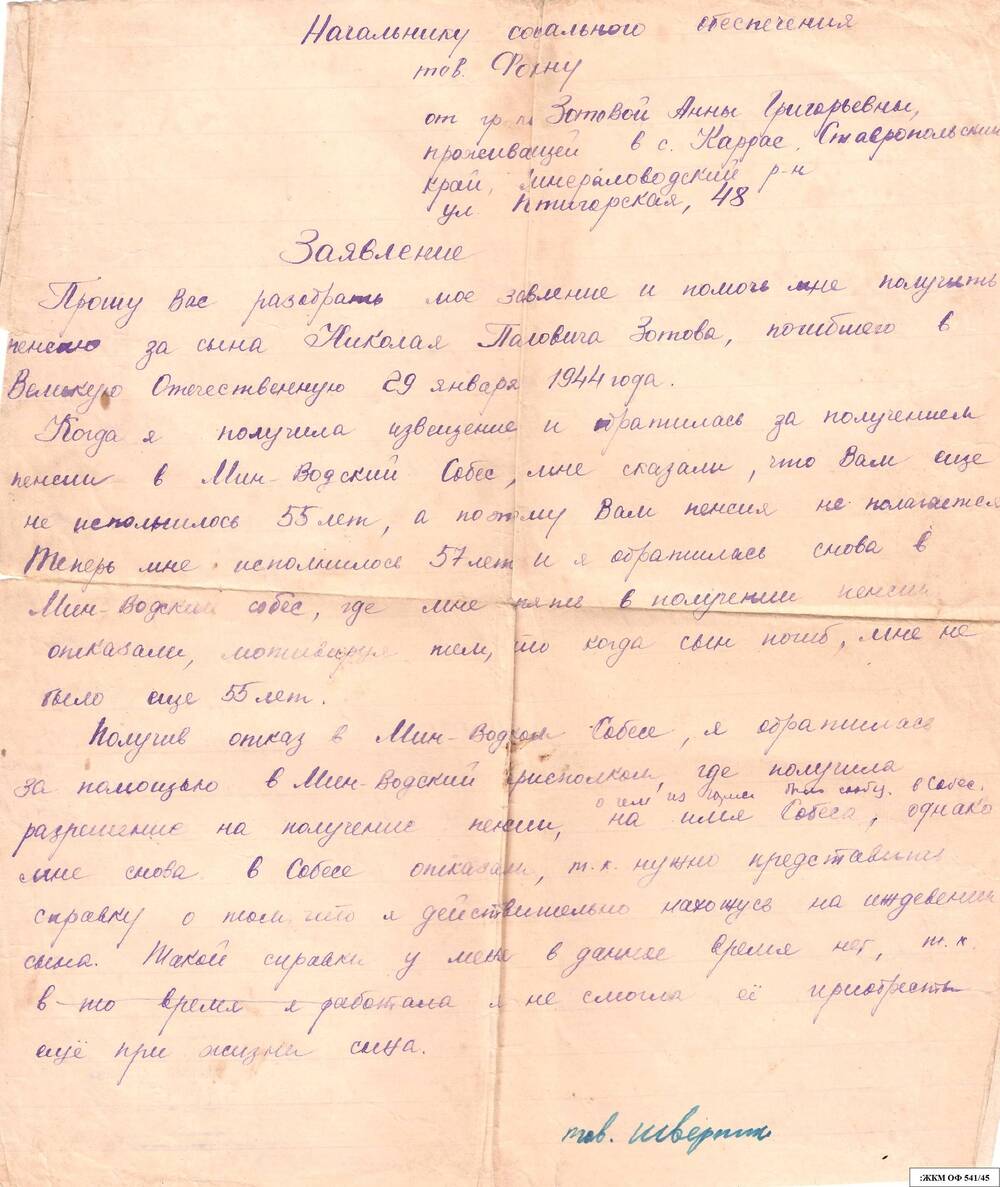 Начальнику социального обеспечения
тов.
от гр. Зотовой Анны Григорьевны,
проживащей в с. Каррас, Ставропольский
край, Минераловодский р-н
ул. Птигорская, 48
Заявление
Прошу Вас разобрать мое завление и помочь мне получить
пенсию за сына Николая Павовича Зотова, погибшего в
Великую Отечественную 29 января 1944 года.
Когда я получила извещение и обратилась за получением
пенсии в Мин-Водский Собес, мне сказали, что Вам еще
не исполнилось 55 лет, а поэтому Вам пенсия не полагается
Теперь мне исполнилось 57 лет и я обратилась снова в
Мин-Водский собес, где мне опять в получении пенсии
отказали, мотивируя тем, что когда сын погиб, мне не
было еще 55 лет.
Получив отказ в Мин-Водском Собесе, я обратилась
за помощью в Мин-Водский горисполком, где получила
о чем из было сообщ. в Собес.
разрешение на получение пенсии, на имя Собеса, однако
мне снова в Собесе отказали, т.к. нужно представить
справку о том что я действительно нахожусь на иждевении
сына. Такой справки у меня в данное время нет, т.к.
в то время я работала я не смогла её приобресть
ещё при жизни сына.
тов. Шверник
:ЖКМ ОФ 541/45